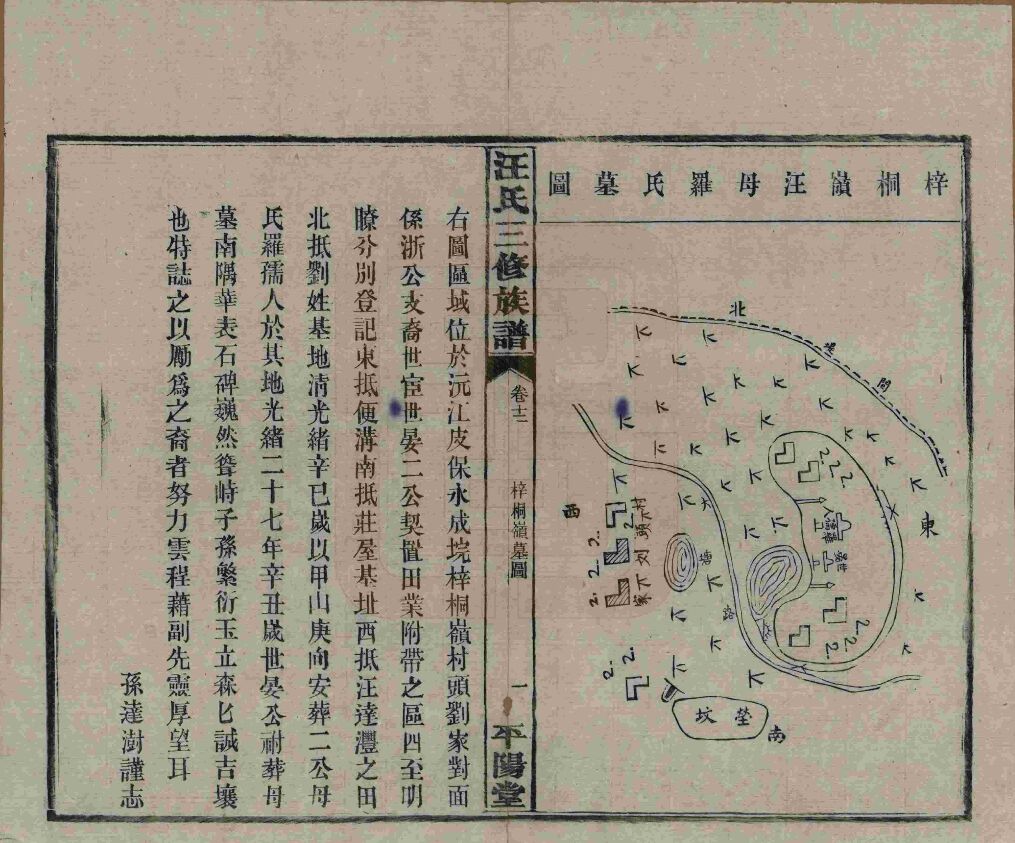 梓桐嶺汪母羅氏墓圖
北
堤
間
東
南
西
大
塘
路
村頭刘家
塋坟
汪氏三修族譜
卷十二
梓桐嶺墓圖
一
平陽堂
右圖區域位於沅江皮保永成垸梓桐嶺村頭劉家對面
係浙公支裔世宦世晏二公契置田業附帶之區四至明
瞭分別登記東抵便溝南抵莊屋基址西抵汪達灃之田
北抵劉姓基地清光緒辛巳歲以甲山庚向安葬二公母
氏羅孺人於其地光緒二十七年辛丑歲世晏公祔葬母
墓南隅華表石碑巍然聳峙子孫繁衍玉立森匕誠吉壤
也特誌之以勵爲之裔者努力雲程藉副先靈厚望耳
孫達澍謹志